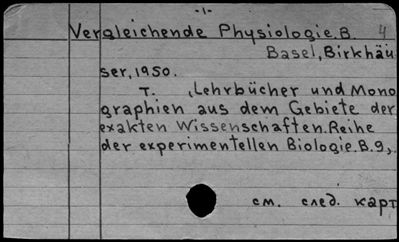 -1-
Vergleichende Physiologie.B. 4
Basel, Birkhäu
ser, 1950.
T. , Lehrbücher und Mono
graphien aus dem Gebiete der
exakten Wissenschaften. Reihe
der experimentellen Biologie. B.9,.
см. след. карт